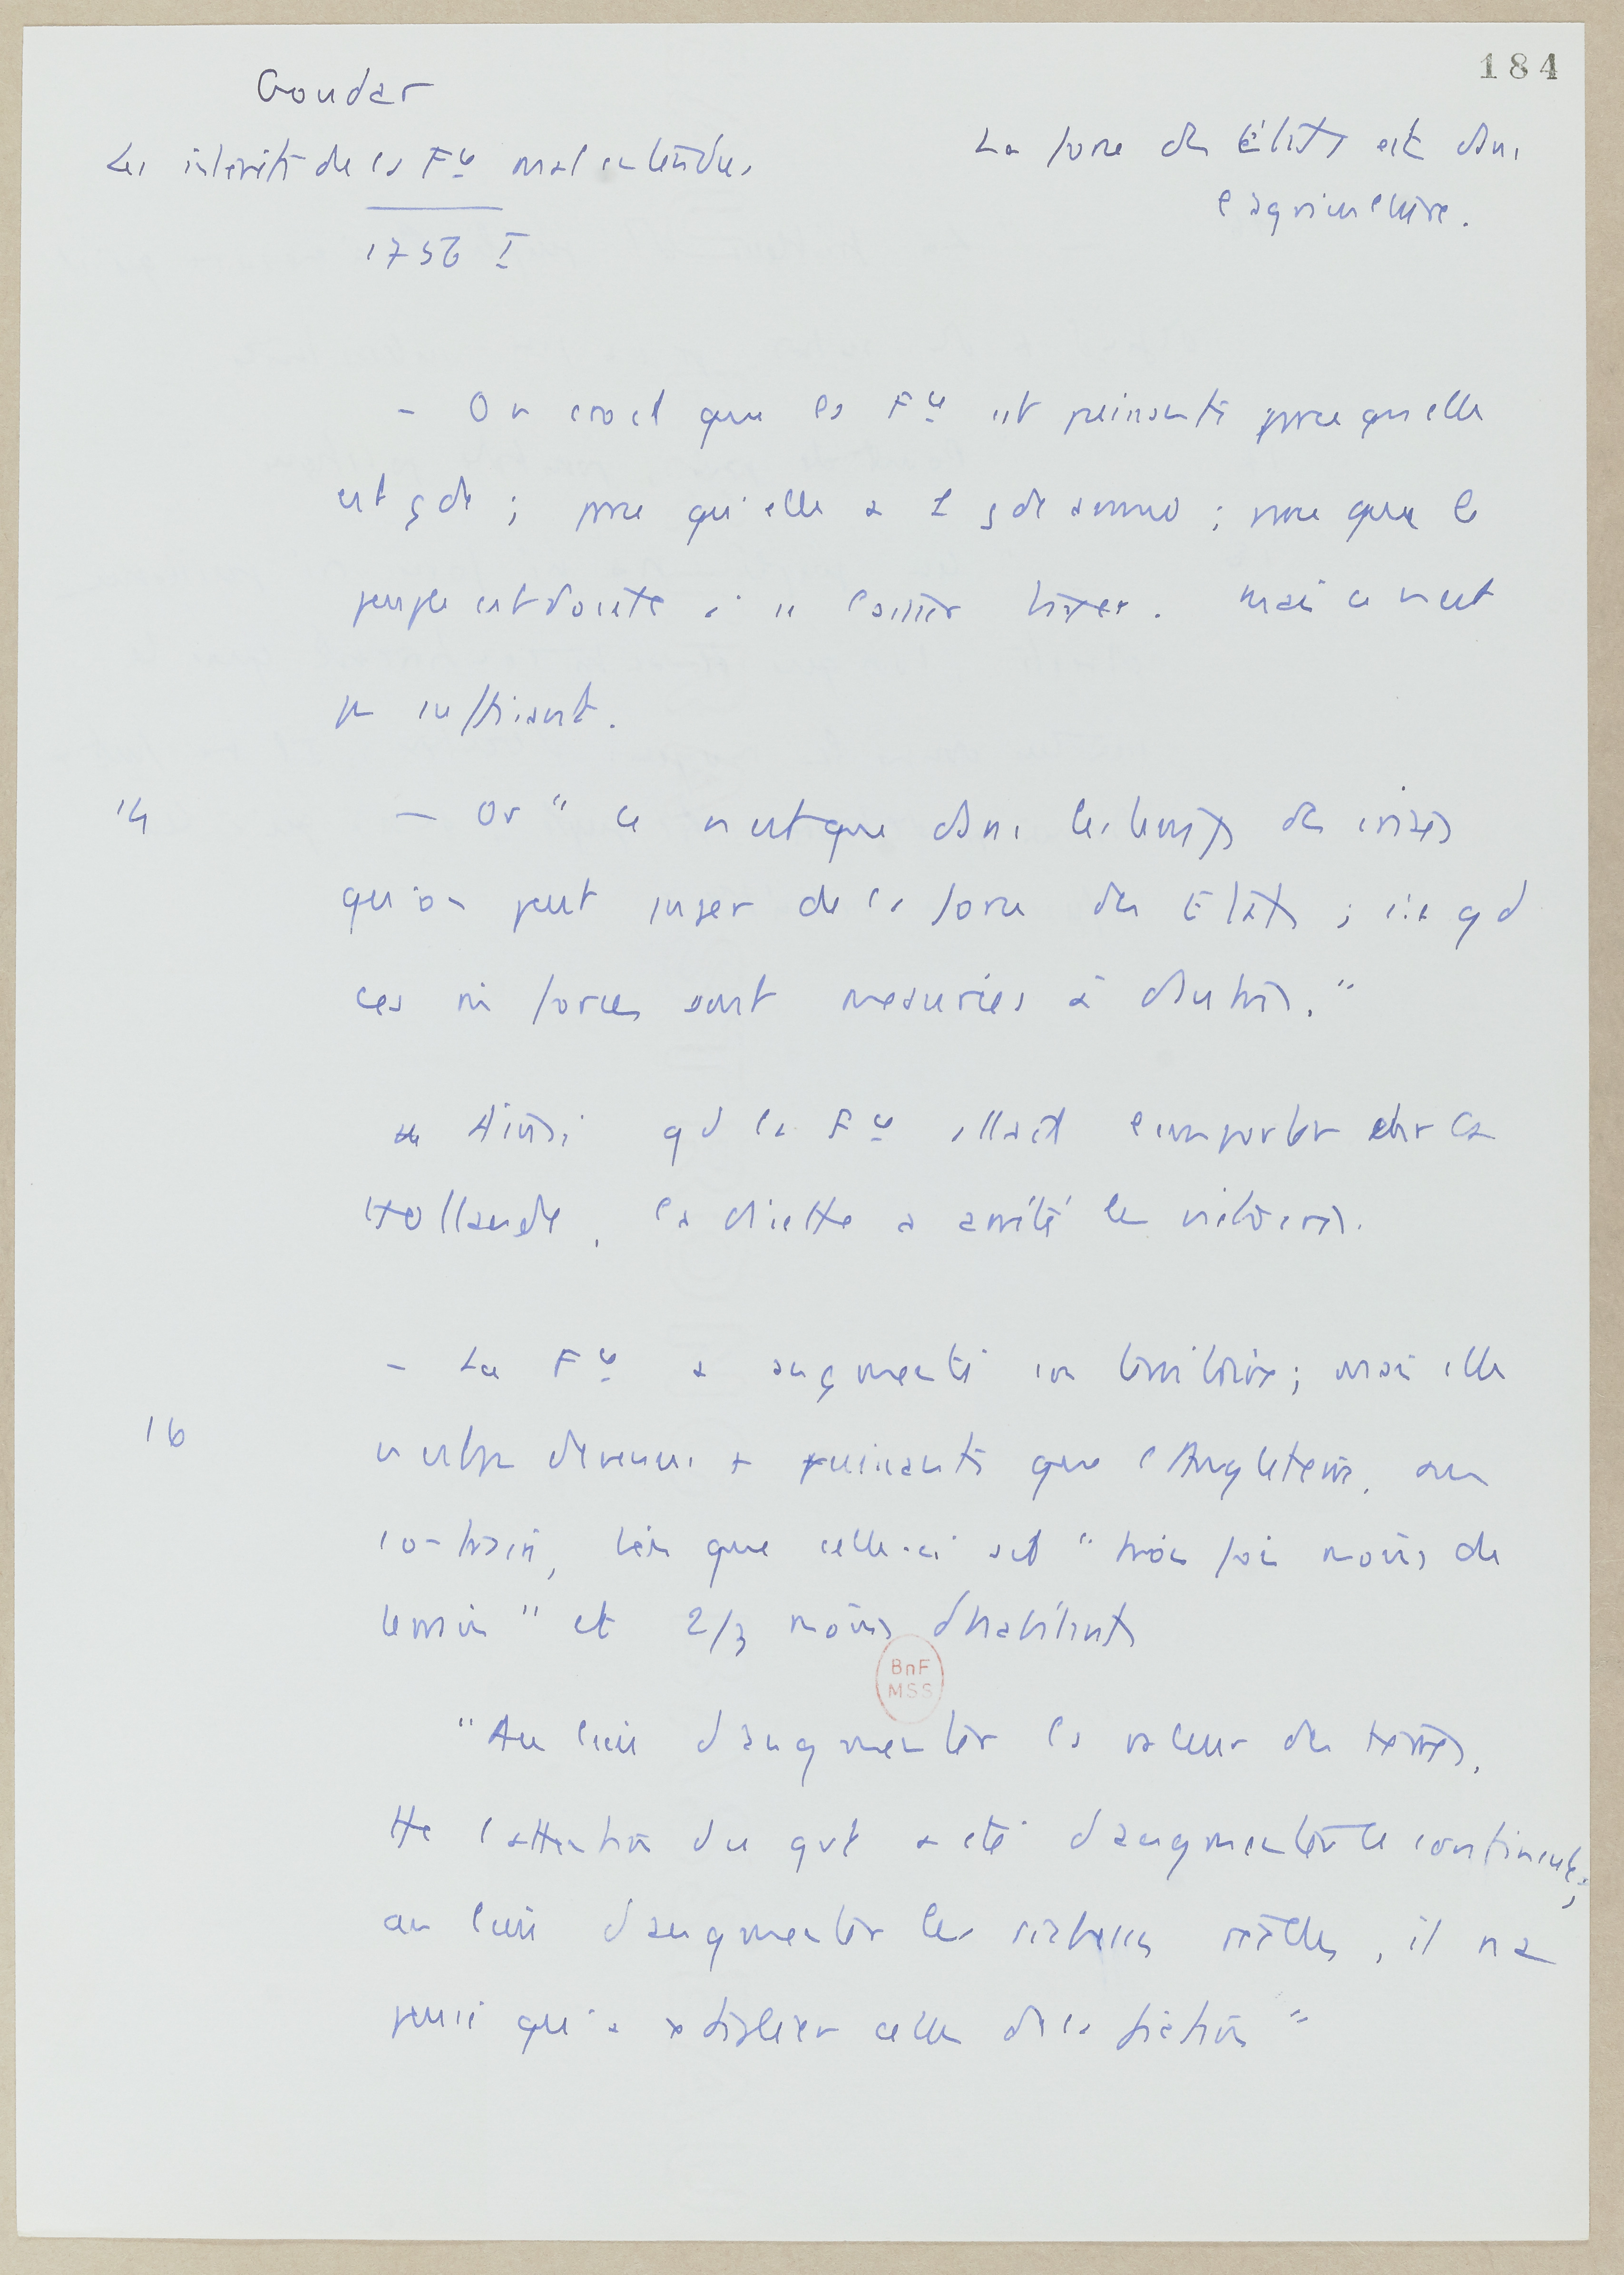 184
Goudar
Les intérêts de la Fce mal entendus
1756 I
La force des États est dans
l'agriculture.
- On croit que la Fce est puissante parce qu'elle
est gde ; parce qu'elle a 1 gde armée ; parce que le
peuple est docile et se laisse taxer. Mais ce n'est
pas suffisant.
14
- Or "ce n'est que dans les temps de crises
qu'on peut juger de la force des États ; c'est qd
ces forces sont mesurées à d'autres."
Ainsi qd la Fce allait l'emporter sur la
Hollande, la disette a arrêté les victoires.
- La Fce a augmenté son territoire ; mais elle
16
n'est pas devenue + puissante que l'Angleterre, au
contraire, bien que celle-ci ait "trois fois moins de
terrain" et 2/3 moins d'habitants
"Au lieu d'augmenter la valeur des terres,
tte l'attention du gvt a été d'augmenter le continent ;
au lieu d'augmenter les richesses réelles, il n'a
pensé qu'à celles de la fiction"
BnF
MSS